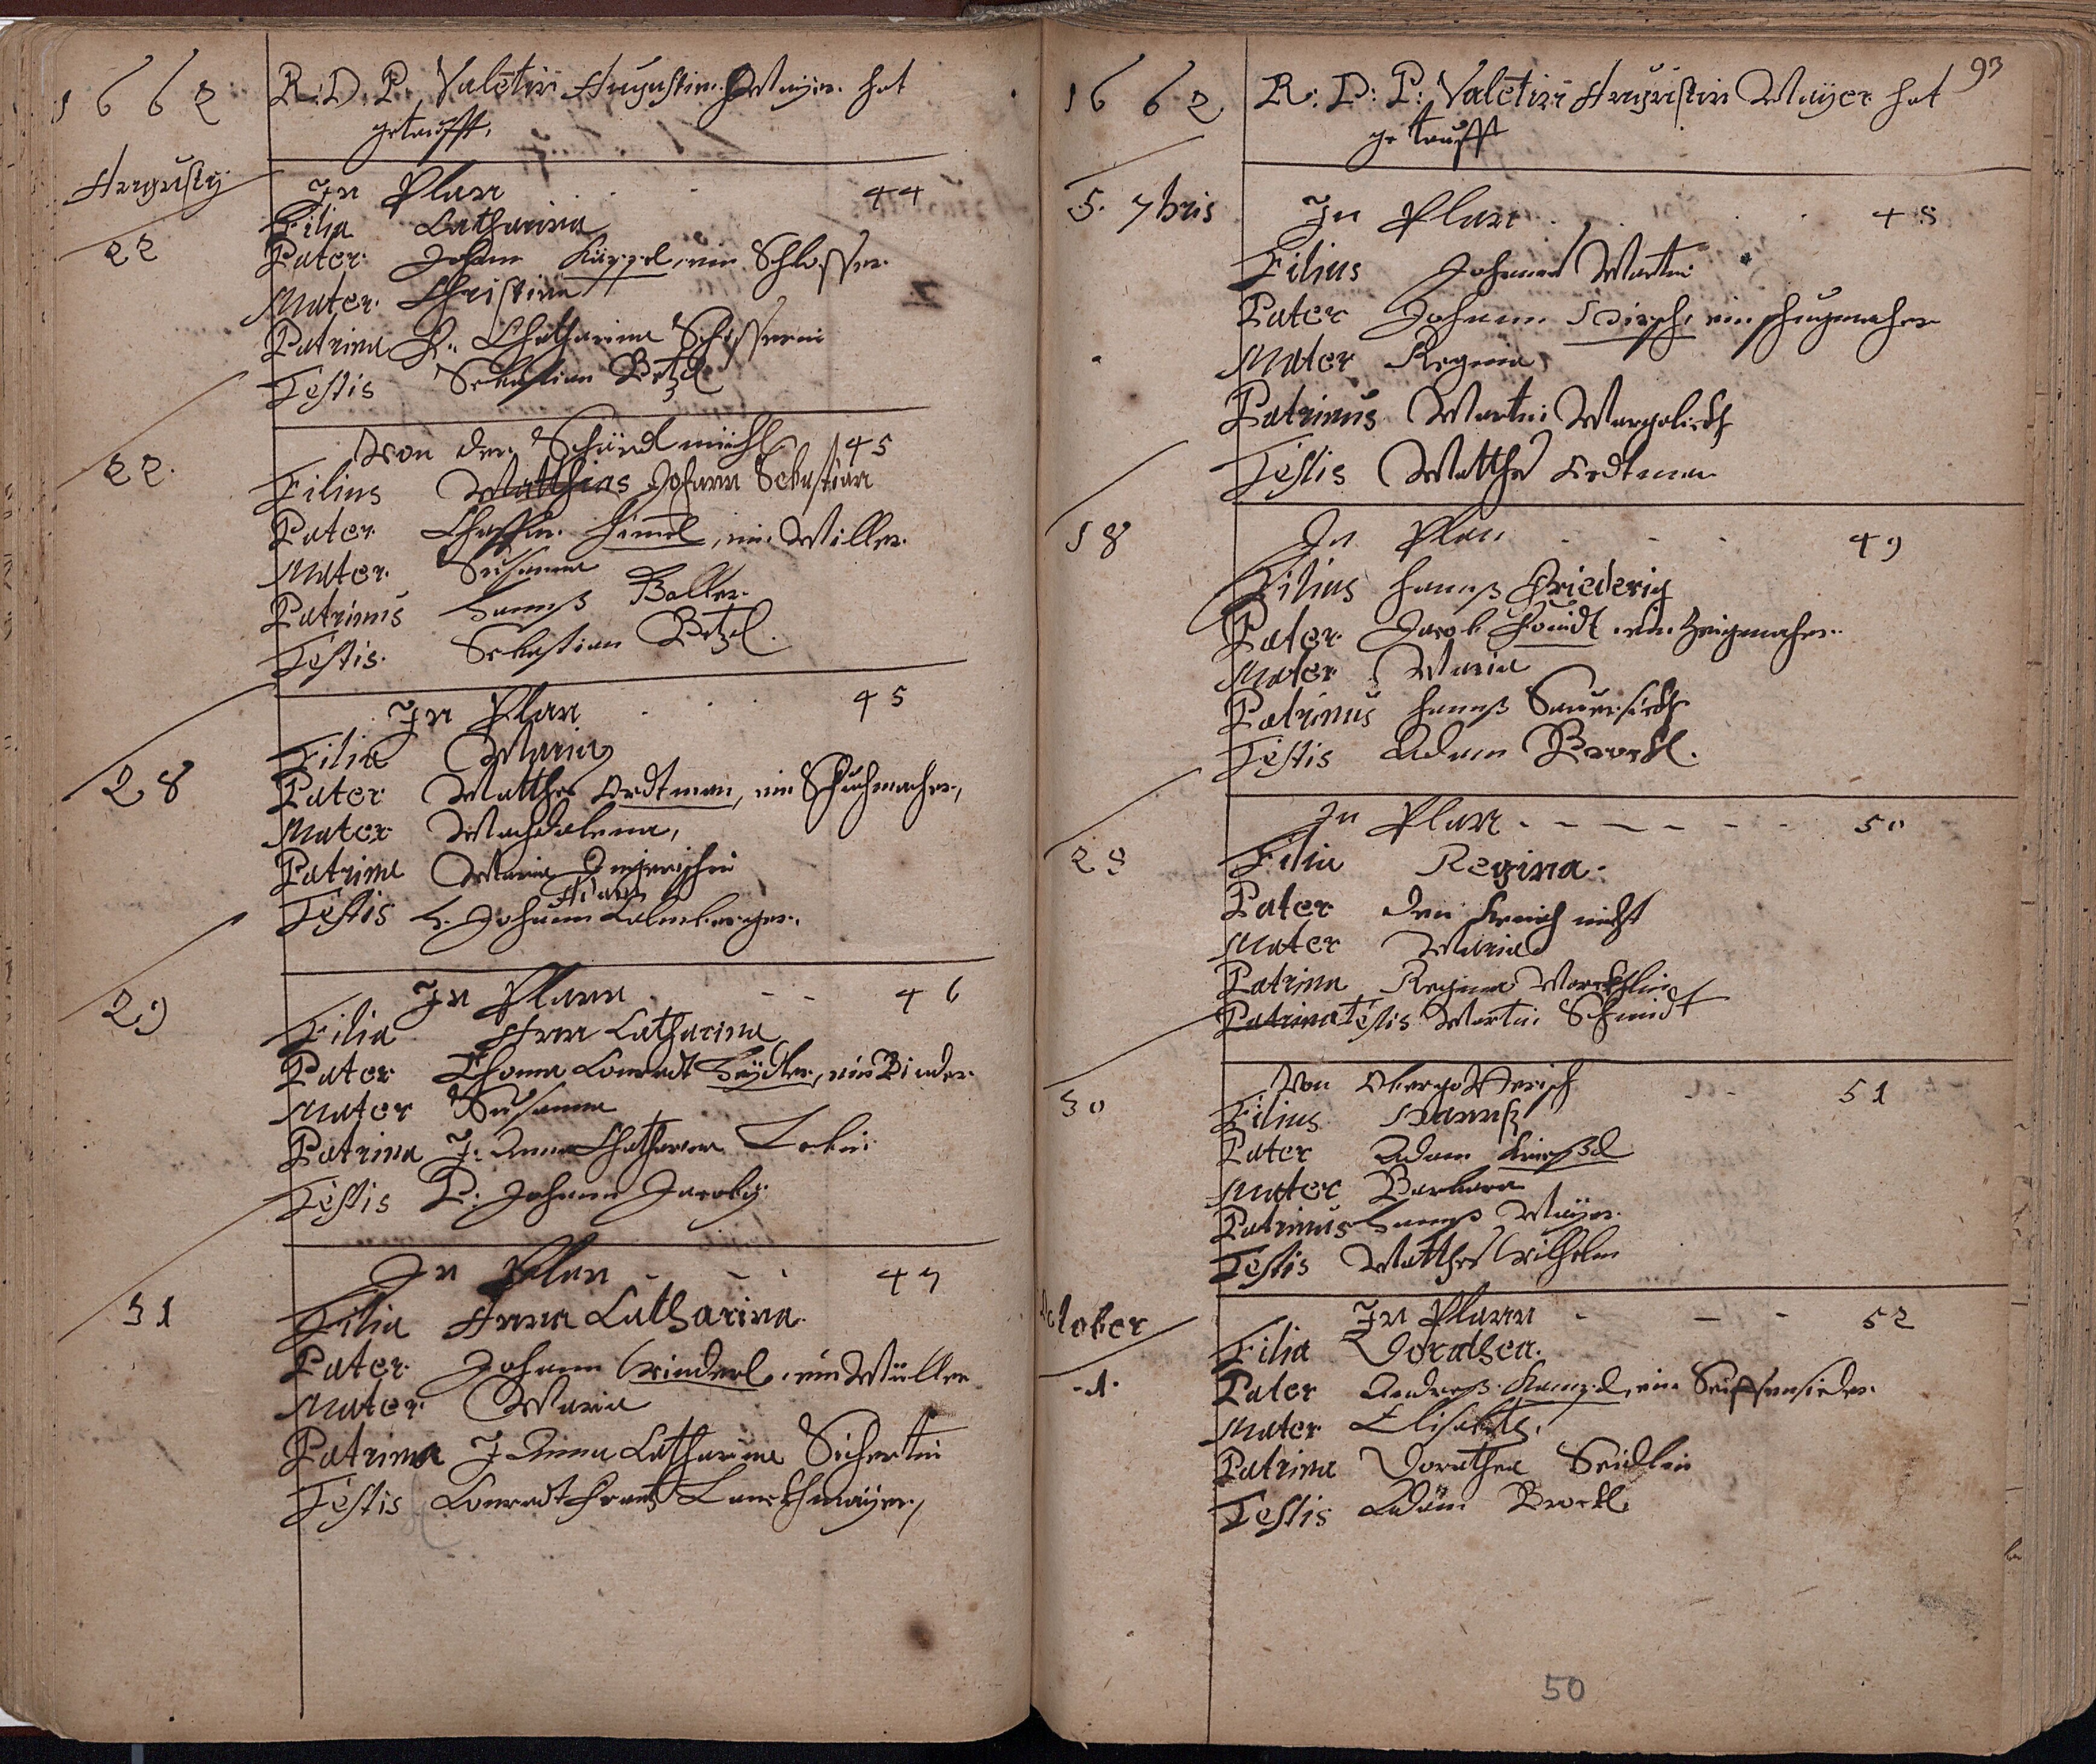 1662
R: D: P: Valētin Augustin Mayer hat
getaufft,
Augusty
22
In Plan 44
Filia Catharina
Pater Johan Küppel, ein Schlosser
Mater Christina
Patrina Chatharina
Testis Sebastian Betzl
22.
Von der 45
Filius Matthias Johann Sebastian
Pater himel, ein Miller
Mater Susanna
Patrinus Hannß Baller
Testis. Sebastian Betzl.
28
In Plan 45
Filia Maria
Pater Matthes Ordtman, ein Schuhmacher,
Mater Machdalena,
Patrina Maria
Testis H. Johann Calmberger.
29
In Plann 46
Filia Anna Catharina
Pater Thoma Conradt Heydler, ein Binder
Mater Susanna
Patrina J: Anna Chatharina
Testis P: Johann Jacoby
31
In Plan 47
Filia Anna Catharina
Pater Johann Grinderl, ein Müller
Mater Maria
Patrina J Anna Catharina Sichertin
Testis Conradt Frantz Lanckhmayer,
93
1662
R: D: P: Valētin Augustin Mayer hat
getaufft
5. 7bris
In Plan 48
Filius Johann Martin
Pater Johann Hirsch, ein
Mater Regina
Patrinus Martin Margolith
Testis Matthes Ordtman
18
In Plan 49
Filius Hannß Friederig
Pater Jacob Schmidt ein Zeigmacher
Mater Maria
Patrinus Hannß
Testis Adam Brockl.
28
In Plan 50
Filia Regina.
Pater den nicht
Mater Maria
Patrina Regina
Patrina Testis Martin Schmidt
30
Von Obergotterisch 51
Filius Hannß
Pater Adam
Mater Barbara
Patrinus Hannß Mayer
Testis Matthes Wilhelm
October
1.
In Plann 52
Filia Dorathea.
Pater Andreß Hampl, ein Seiffensieder
Mater Elisabeth,
Patrina Dorathea Seidlin
Testis Adam Brockl
50